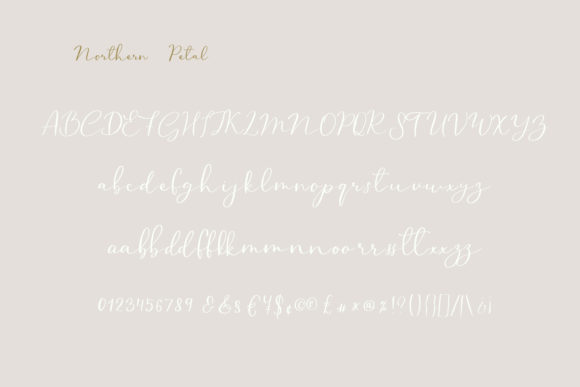 Northern Petal
ABCDEFGHIJKLMNOPQRSTUVWXYZ
abcdefghijklmnopqrstuvwxyz
aabbddffkkmmnnoorrssttxxzz
0123456789 &&$€¥$¢©® £#*@%!?(){}[]/|\ ¿¡